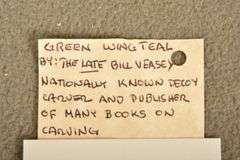 GREEN WING TEAL
BY: THE LATE BILL VEASEY
NATIONALLY KNOWN DECOY
CARVER AND PUBLISHER
OF MANY BOOKS ON
CARVING